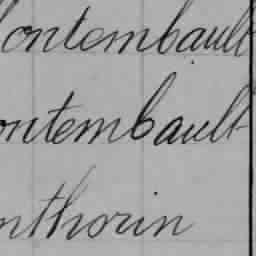 ontembault
ontembault
nthorin